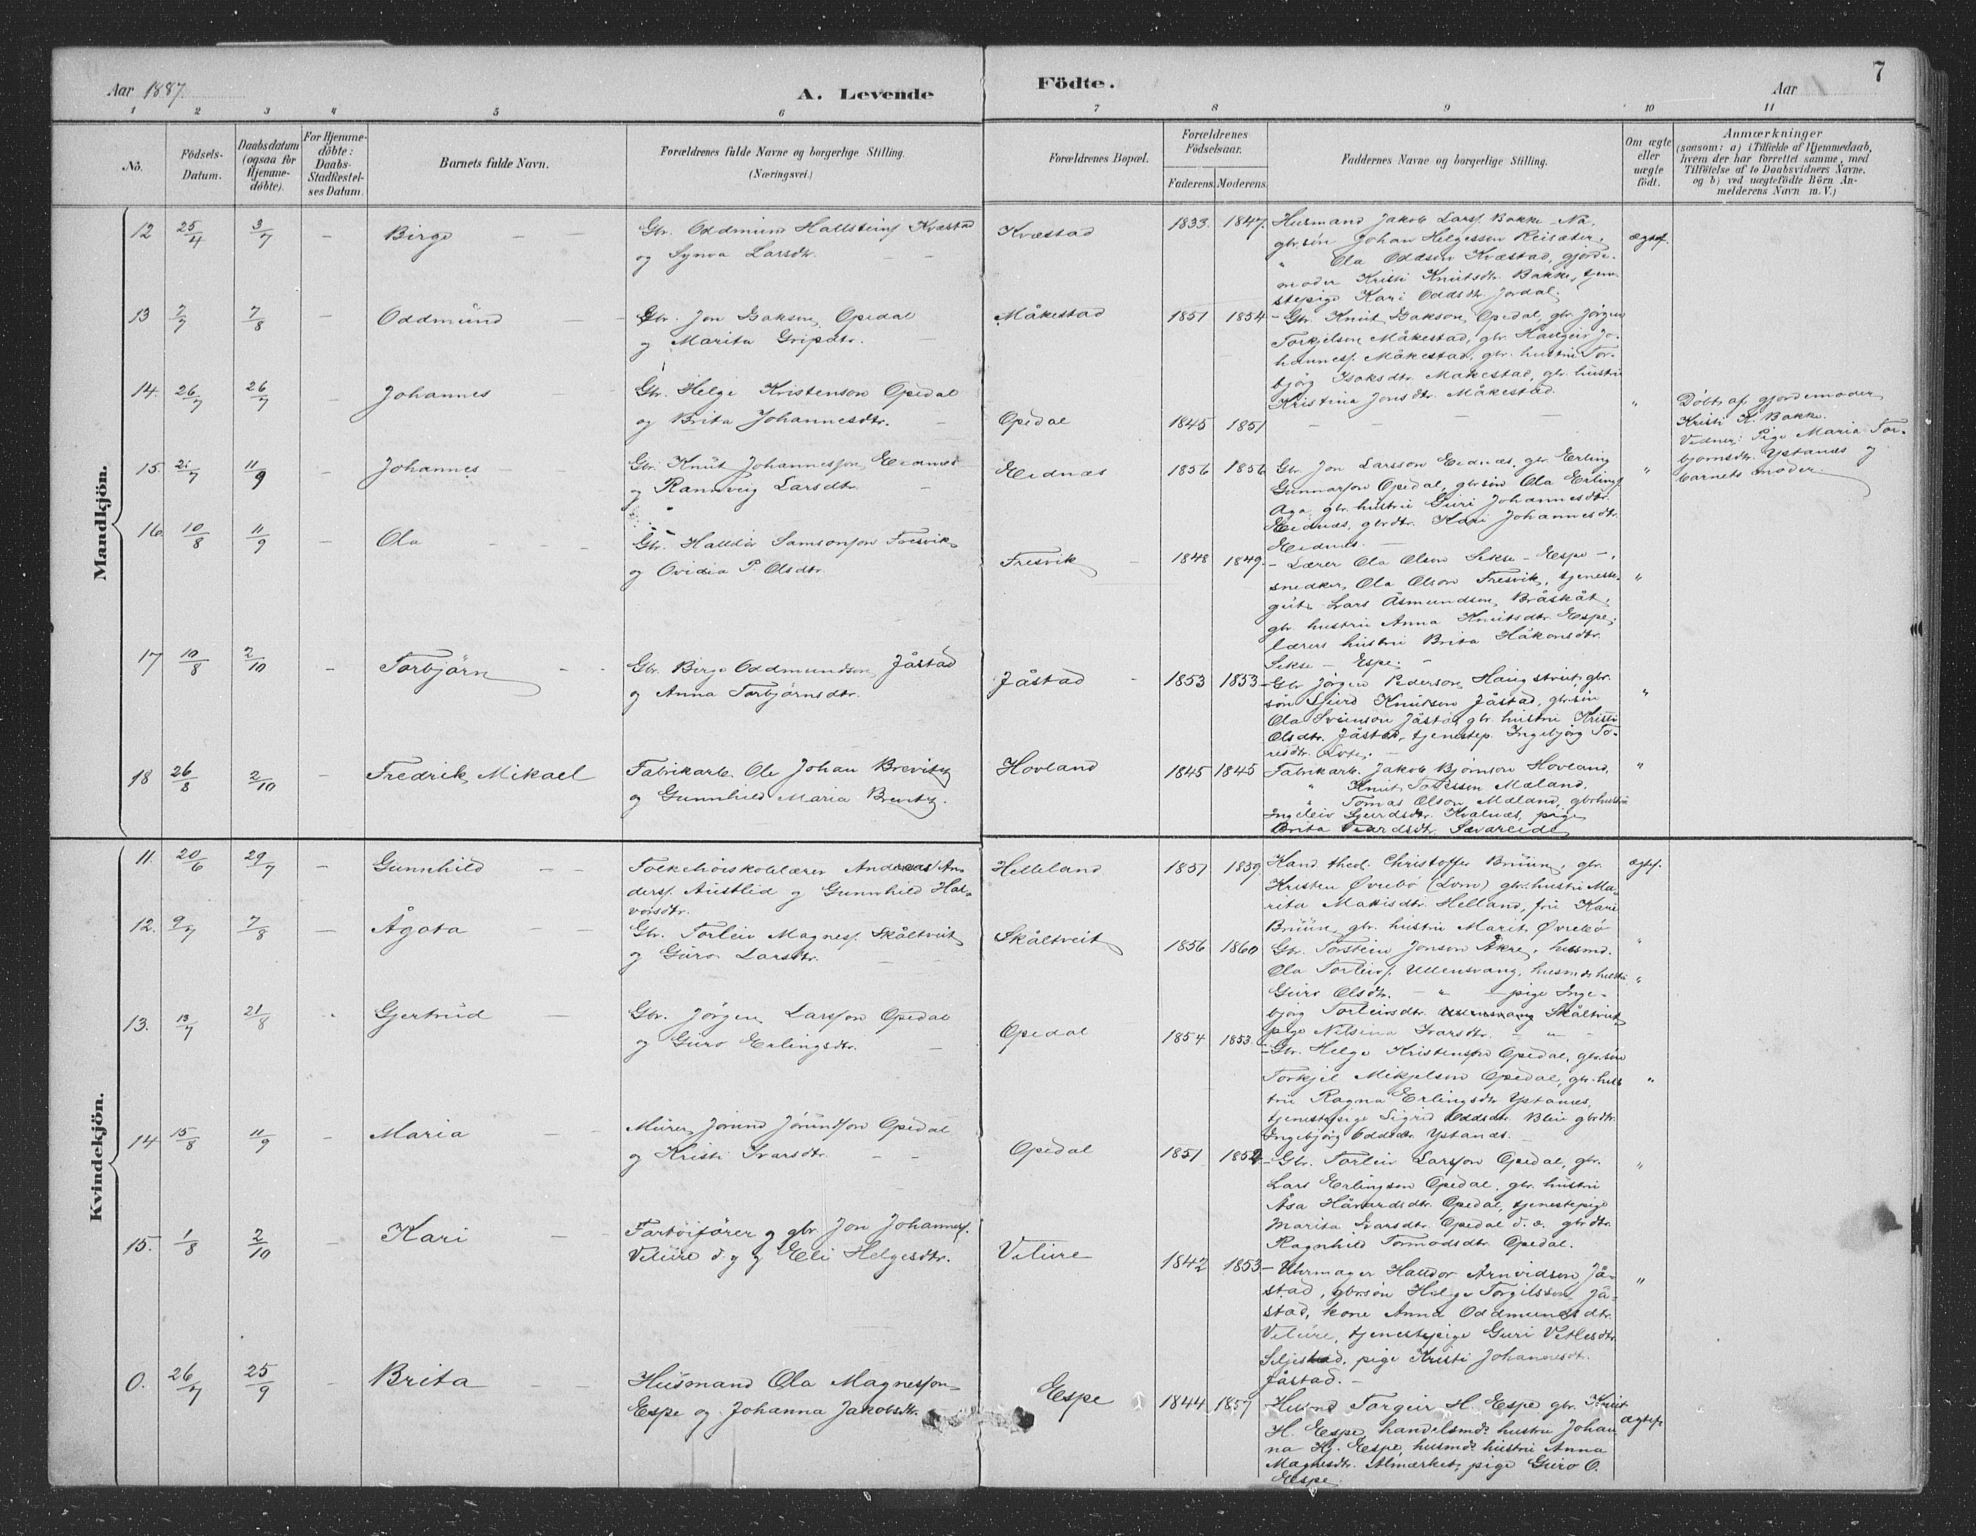 Aar 1887.
A. Levende
Födte.
Aar
7
1 2 3 4 5 6 7 8 9 10 11
No.
Födsels-Datum.
Daabsdatum (ogsaa för Hjemmedöbte).
For Hjemmedöbte: Daabs-Stadfæstelses Datum.
Barnets fulde Navn.
Forældrenes fulde Navne og borgerlige Stilling.
(Næringsvei.)
Forældrenes Bopæl.
Forældrenes Födselsaar.
Faderens. Moderens.
Faddernes Navne og borgerlige Stilling.
Om ægte eller uægte födt.
Anmærkninger
(saasom: a) i Tilfælde af Hjemmedaab, hvem der har forrettet samme, med Tilföielse af to Daabsvidners Navne. og b) ved uægtefödte Börn Anmelderens Navn m. V.)
Mandkjön.
12 25/4 3/7 – Birge
Gbr. Oddmund Hallsteins. Kvæstad
og Synva Larsdtr.
Kvæstad 1833. 1847.
Husmand Jakob Larss. Bakke – Na,
gbr.søn Johan Helgessen Reisæter,
" Ola Oddsön Kvæstad, gjorde-
moder Kristi Knutsdtr. Bakke, tjen-
stepige Kari Oddsdtr. Jordal.
ægtef.
13 7/7 7/8 – Oddmünd
Gbr. Jon Isakson Opedal
og Marita Gripsdtr.
Måkestad 1851 1854
– Gbr. Knut Isakson Opedal, gbr. Jörgen
Torkjelson Måkestad, gbr. Haugeir Jo-
hanness. Måkestad, gbr. hustru Tor-
björg Isaksdtr. Måkestad, gbr. hustru
Kristina Jonsdtr. Måkestad.
"
14. 26/7 26/7 – Johannes
Gbr. Helge Kristenson Opedal
og Brita Johannesdtr.
Opedal 1845 1851
– – –
Döbt af gjordemoder
Kristi K. Bakke.
Vidner: Pige Maria Tor-
bjornsdtr. Ystanes og
barnets moder.
15. 21/7 11/9 – Johannes
Gbr. Knut Johannesson Eidnes
og Rannveig Larsdtr.
Eidnæs 1856 1856
Gbr. Jon Larsson Eidnæs, gbr. Erling
Gunnarson Opedal, gbr.søn Ola Erlings.
Aga, gbr. hustru Guri Johannesdtr.
Eidnæs, gbr.dtr. Kari Johannesdtr.
Eidnæs. –
"
16. 10/8 11/9 – Ola
Gbr. Halldór Samsonson Fresvik
og Ovidia P. Olsdtr.
Fresvik 1848 1849.
– Lærer Ola Olson Sekse – Espe –,
snedker Ola Olson Fresvik, tjeneste-
gut Lars Åsmundsen Bråskåt,
gbr. hustru Anna Knutsdtr. Espe,
lærers hustru Brita Håkonsdtr.
Sekse – Espe. "
"
17 10/8 2/10 – Torbjörn
Gbr. Birge Oddmundson Jåstad
og Anna Torbjörnsdtr.
Jåstad 1853 1853
– Gbr. Jörgen Pederson Haugstveit, gbr.
søn Sjurd Knutson Jåstad, gbr.søn
Ola Sveinson Jåstad, gbr. hustru Kristi
Olsdtr. Jåstad, tjenestep. Ingebjörg To-
resdtr. Lote. –
"
18 26/8 2/10 – Fredrik Mikael
Fabrikarb. Ole Johan Brevitz
og Gunnhild Maria Brevitz.
Hovland 1845 1845
Fabrikarb. Jakob Bjørnson Hovland,
" Knut Torkssen Mæland,
" Tomas Olson Mæland, gbr.hustru
Ingeleiv Gjurdsdtr. Kvalnæs, pige
Brita Ivarsdtr. Sævareide
"
Kvindekjön.
11. 20/6 29/7 – Gunnhild
Folkehöiskolelærer Andreas An-
derss. Austlid og Gunnhild Hal-
vorsdtr.
Helleland 1851 1859
Kand. theol. Christoffer Brüün, gbr.
Kristen Øvrebö (Lom) gbr. hustru Ma-
rita Mattisdtr. Helland, frü Kari
Brüün, gbr. hustru Marit Øvrebö
ægtef.
12. 9/7 7/8 – Ågata
Gbr. Torleiv Magness. Skåltveit
og Guro Larsdtr.
Skåltveit 1856 1860
Gbr. Torstein Jonson Åkre, husmd.
Ola Torleivs. Ullensvang, husmds hustru
Guro Olsdtr. – " – pige Inge-
björg Torleivsdtr. Skåltveit
pige Nilsina Ivarsdtr. – " –
"
13. 13/7 21/8 – Gjertrüd
Gbr. Jörgen Larsson Opedal
og Guro Erlingsdtr.
Opedal 1854 1853.
– Gbr. Helge Kristenson Opedal, gbr.søn
Torkjel Mikjelson Opedal, gbr. hus-
tru Ragna Erlingsdtr. Ystanes,
tjenestepige Sigrid Oddsdtr. Blei gbr.dtr.
Ingebjörg Oddsdtr. Ystanes. –
"
14 15/8 11/9 – Maria
Murer Jörund Jörundson Opedal
og Kristi Ivarsdtr.
Opedal 1851 1852
– Gbr. Torleiv Larsson Opedal, gbr.
Lars Erlingson Opedal, gbr. hustru
Åsa Håvardsdtr. Opedal, tjenestepige
Marita Ivarsdtr. Opedal d. o. gbr.dtr.
Ragnhild Tormodsdtr. Opedal.
"
15. 1/8 2/10 – Kari
Fartöiförer og gbr. Jon Johanness.
Vilüre d. y. og Eli Helgesdtr.
Vilüre 1842 1853
– Uhrmager Halldor Arnvidson Jå-
stad, gbr.søn Helge Torgilsson Jå-
stad, kone Anna Oddmundsdtr.
Vilüre, tjenestepige Guri Vetlesdtr.
Seljestad, pige Kristi Johannesdtr.
Jåstad. –
"
O. 26/7 25/9 – Brita
Husmand Ola Magnesson
Espe og Johanna Jakobsdtr.
Espe 1844 1857
Husmd Torgeir H. Espe gbr. Knut
H. Espe, handelsmds hustru Johan
na Hj. Espe, husmds hustru Anna
Magnesdtr. Almærket, pige Guro O.
Espe.
ægtef.